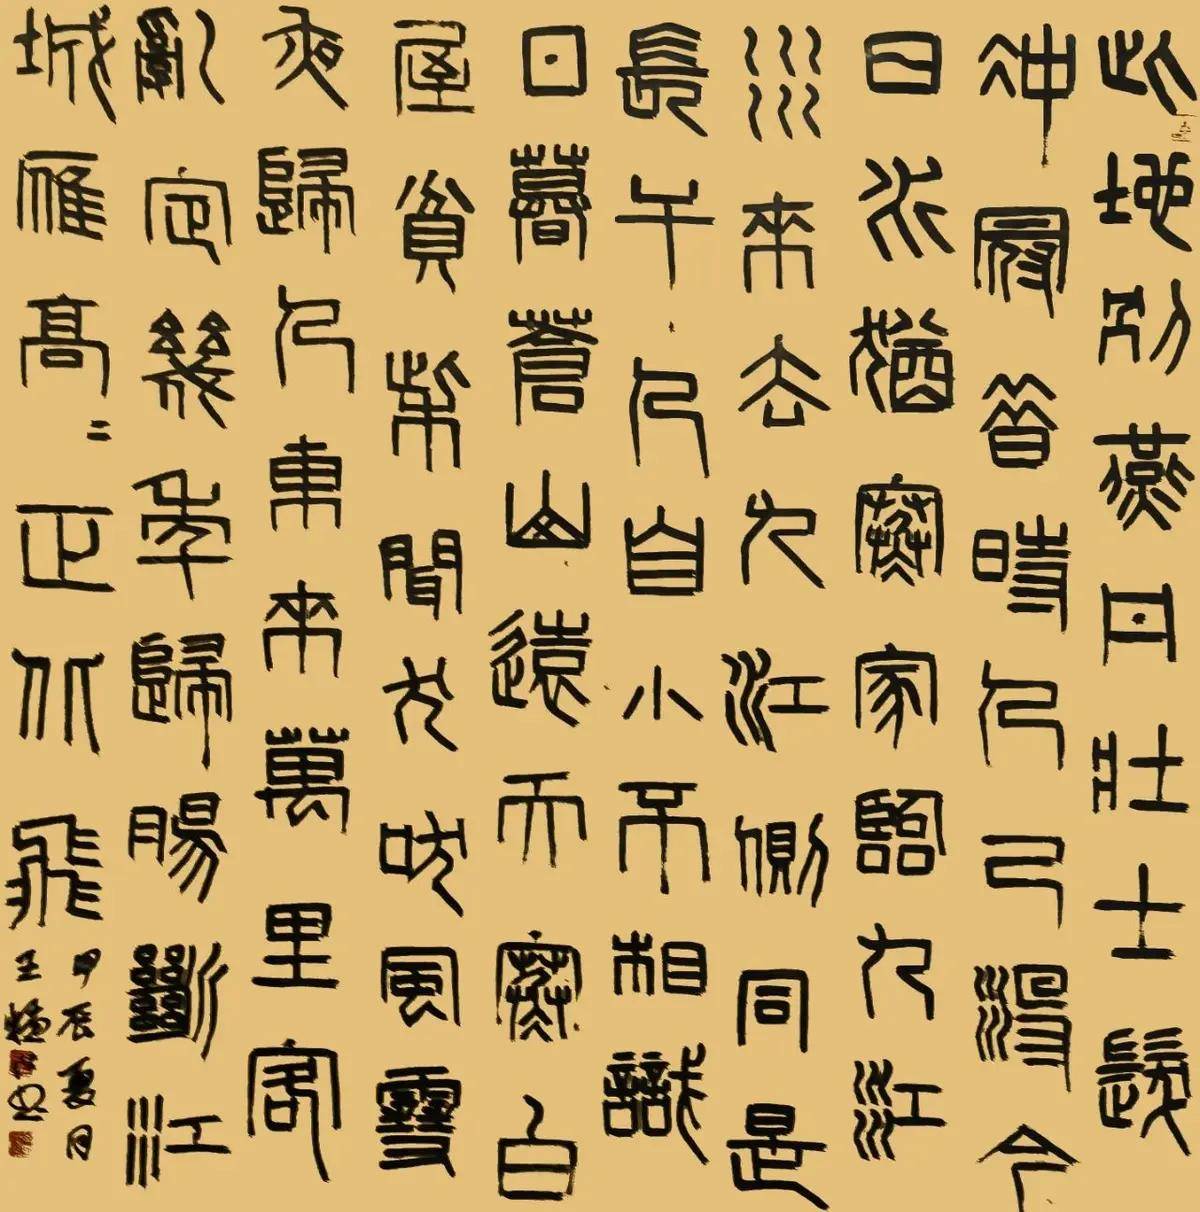 此地别燕丹壯士髮
冲冠昔時人已没今
日水猶寒家臨九江
水來去九江側同是
長干人自小不相識
日暮蒼山遠天寒白
屋貧柴聞犬吠風雪
夜歸人東來萬里客
亂定幾年歸腸斷江
城雁高二正北飛
甲辰夏月
王